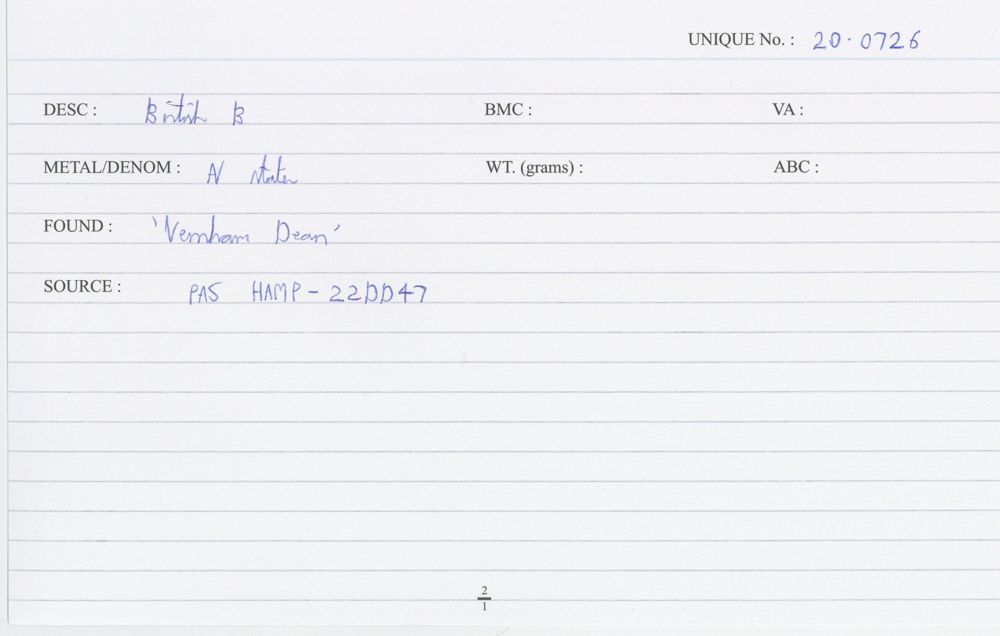 UNIQUE No. : 20·0726
DESC : British B BMC : VA :
METAL/DENOM : N stater WT. (grams) : ABC :
FOUND : 'Vernham Dean'
SOURCE : PAS HAMP-22DD47
2
1